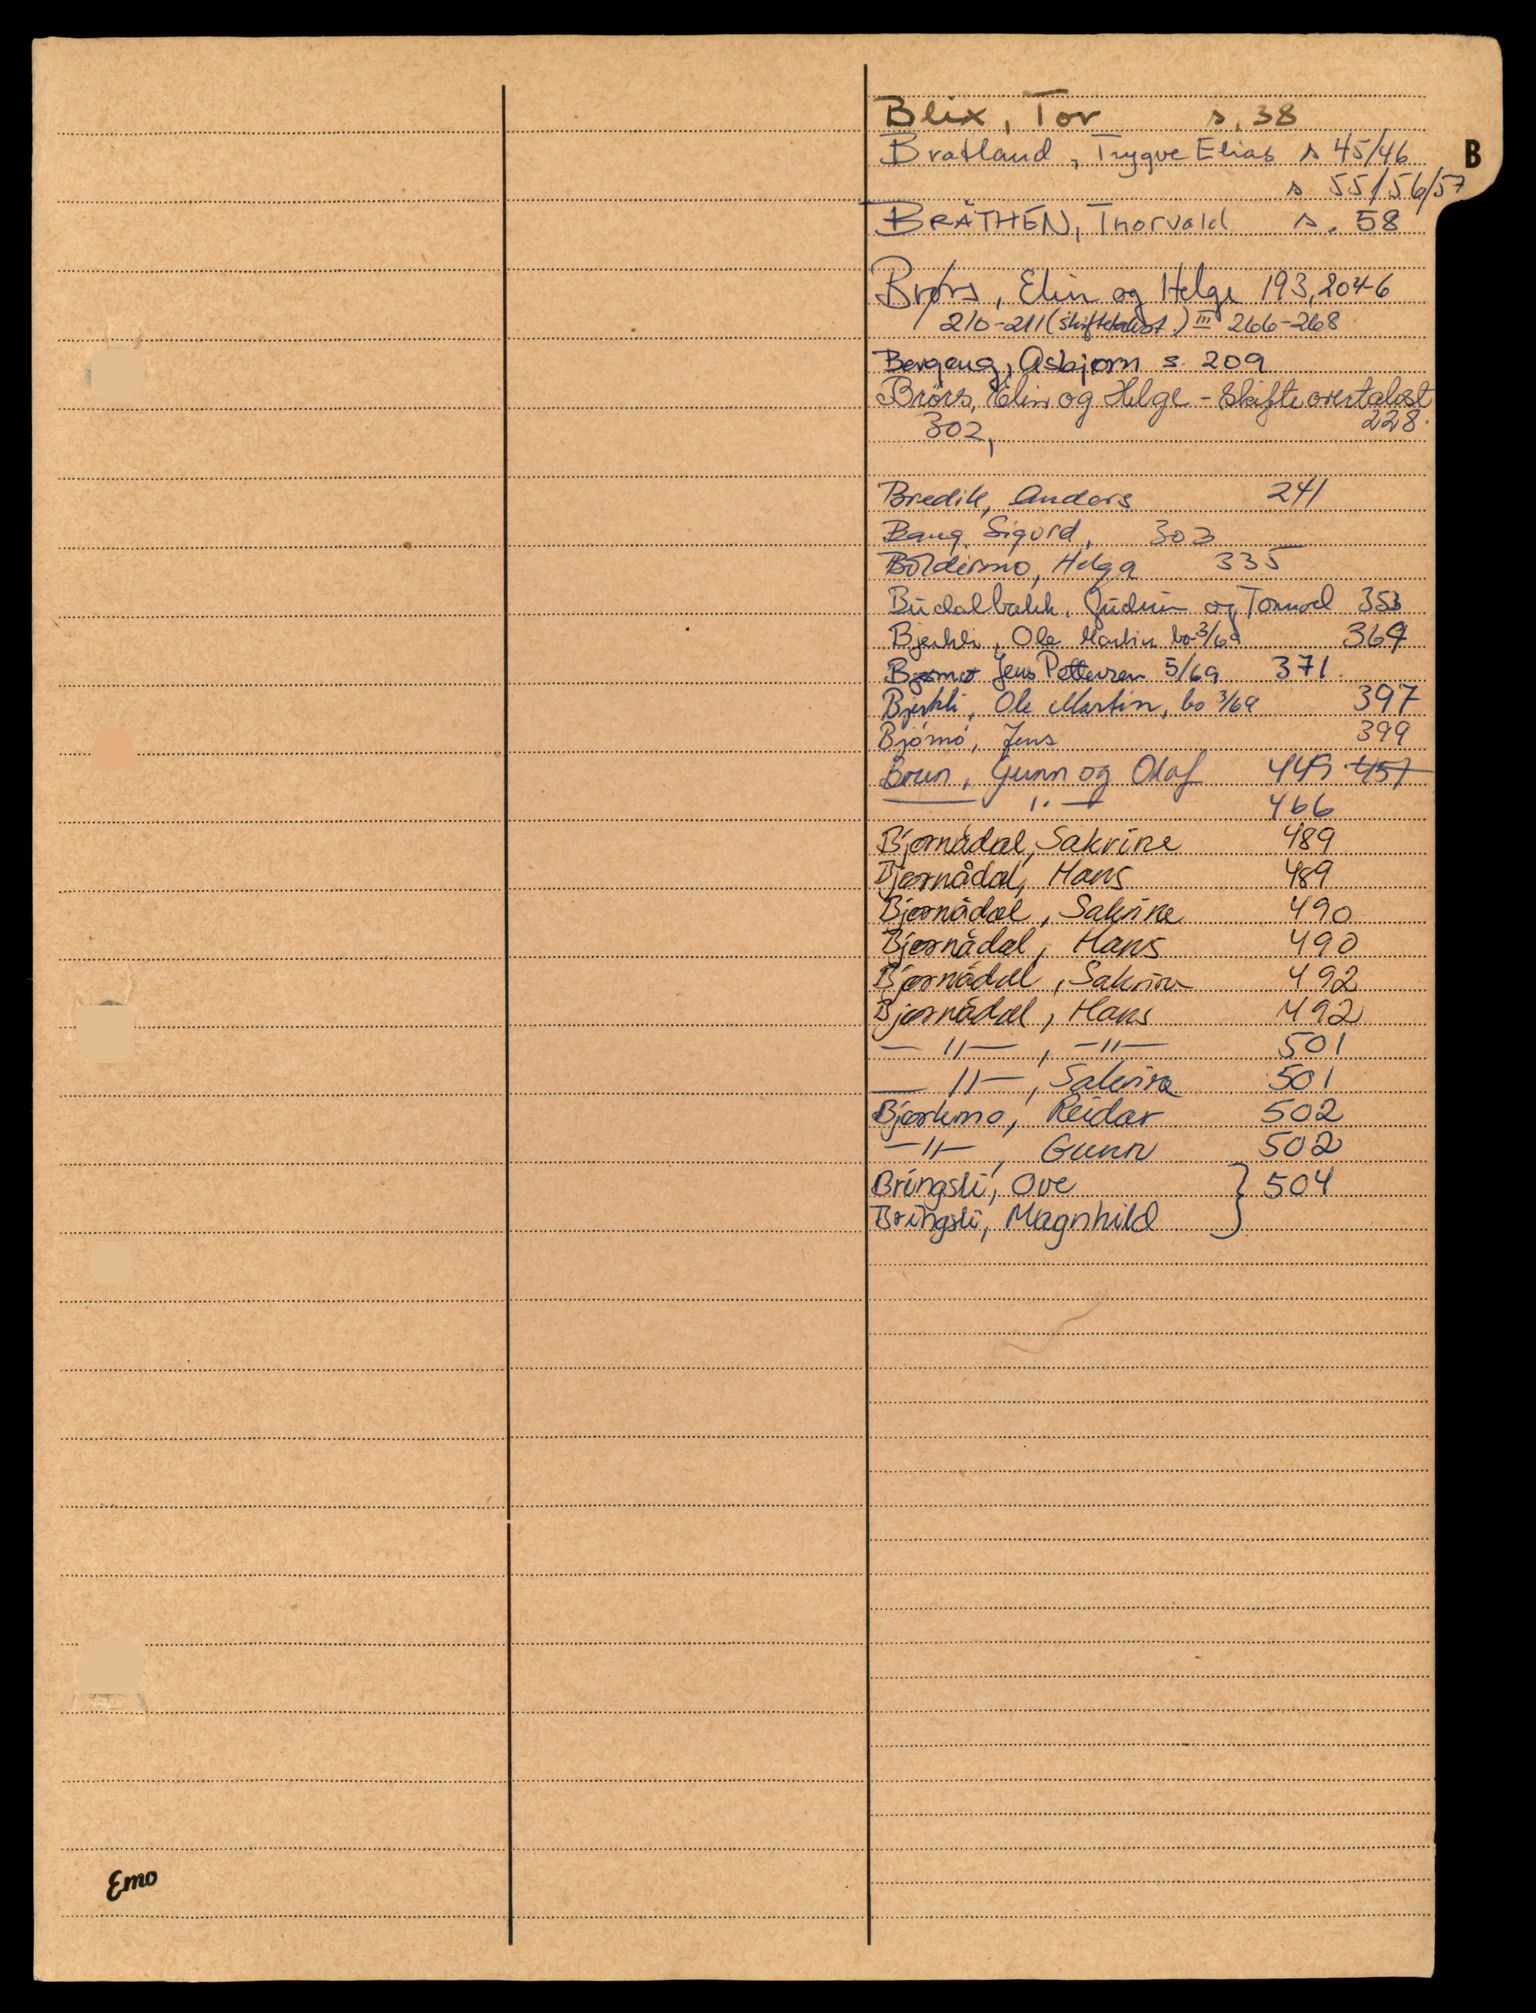 Blix, Tor s. 38
Bratland, Trygve Elias s 45/46
B
s 55/56/57
BRÅTHEN, Thorvald s. 58
Brørs, Elin og Helge 193, 204-6
210-211 (skiftetakst.) III 266-268
Bergeng, Asbjørn s. 209
Brørs, Elin og Helge - Skifteovertakst
302, 228.
Bredik, Anders 241
Bang, Sigurd, 303
Boldermo, Helga 335
Budalbakk, Gudrun og Tormod 353
Bjerkli, Ole Martin bo 3/69 369
Bjørmo Jens Pettersen 5/69 371.
Bjerkli, Ole Martin, bo 3/69 397
Bjørmo, Jens 399
Brun, Gunn og Olaf 449 457
— " — 466
Bjørnådal, Sakrine 489
Bjørnådal, Hans 489
Bjørnådal, Sakrine 490
Bjørnådal, Hans 490
Bjørnådal, Sakrine 492
Bjørnådal, Hans 492
— " — , — " — 501
— " — , Sakrine 501
Bjørkmo, Reidar 502
— " — , Gunn 502
Bringsli, Ove } 504
Bringsli, Magnhild
Emo